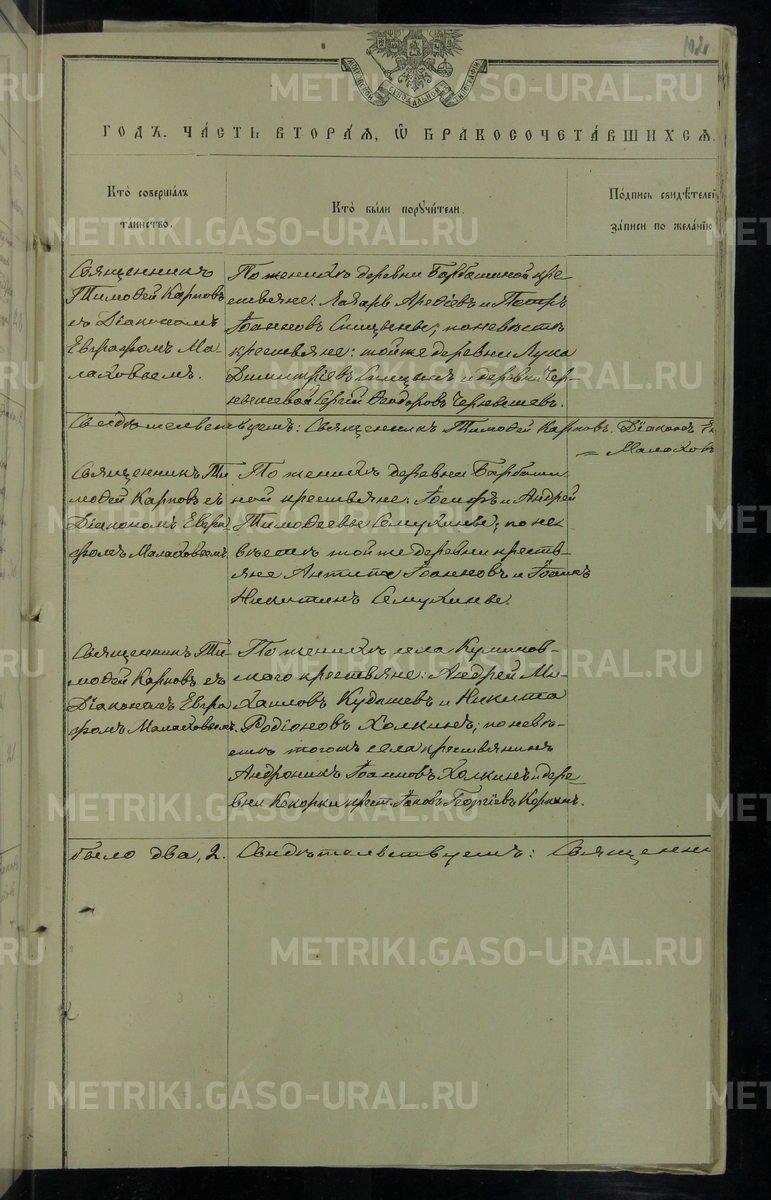 102
МОСКОВСКОЙ СИНОДАЛЬНОЙ ТИПОГРАФІИ
ГОДЪ. ЧАСТЬ ВТОРАЯ, Ѡ БРАКОСОЧЕТАВШИХСЯ.
Кто совершалъ таинство.
Кто были поручители.
Подпись свидѣтелей записи по желанію
Священникъ
Тимофей Карповъ
съ Діакономъ
Евграфомъ Ма-
лаховымъ.
По женихѣ деревни Барбашиной кре-
стьяне: Лазарь Арефіевъ и Петръ
Іоанновъ Синцыны; по невѣстѣ
крестьяне: той же деревни Лука
Димитріевъ Синцынъ и деревни Чер-
нышевой Сергій Ѳеодоровъ Чернышевъ.
Свидѣтельствуемъ: Священникъ Тимофей Карповъ. Діаконъ Ев
= Малаховъ
Священникъ Ти-
мофей Карповъ съ
Діакономъ Евгра
фомъ Малаховымъ.
По женихѣ деревни Барбаши
ной крестьяне: Іосифъ и Андрей
Тимофеевы Семухины; по нев-
вѣстѣ той же деревни кресть-
яне Антипа Іоанновъ и Іоаннъ
Никитинъ Семухины.
Священникъ Ти-
мофей Карповъ съ
Діакономъ Евгра
фомъ Малаховымъ.
По женихѣ села Куминов-
скаго крестьяне: Андрей Ми-
хаиловъ Кудашевъ и Никита
Родіоновъ Холкинъ; по невѣ-
стѣ тогожъ села крестьянинъ
Андроникъ Іоанновъ Холкинъ и дере-
вни Кокорки крест. Іаковъ Георгіевъ
было два, 2. Свидѣтельствуемъ: Священни
METRIKI.GASO-URAL.RU